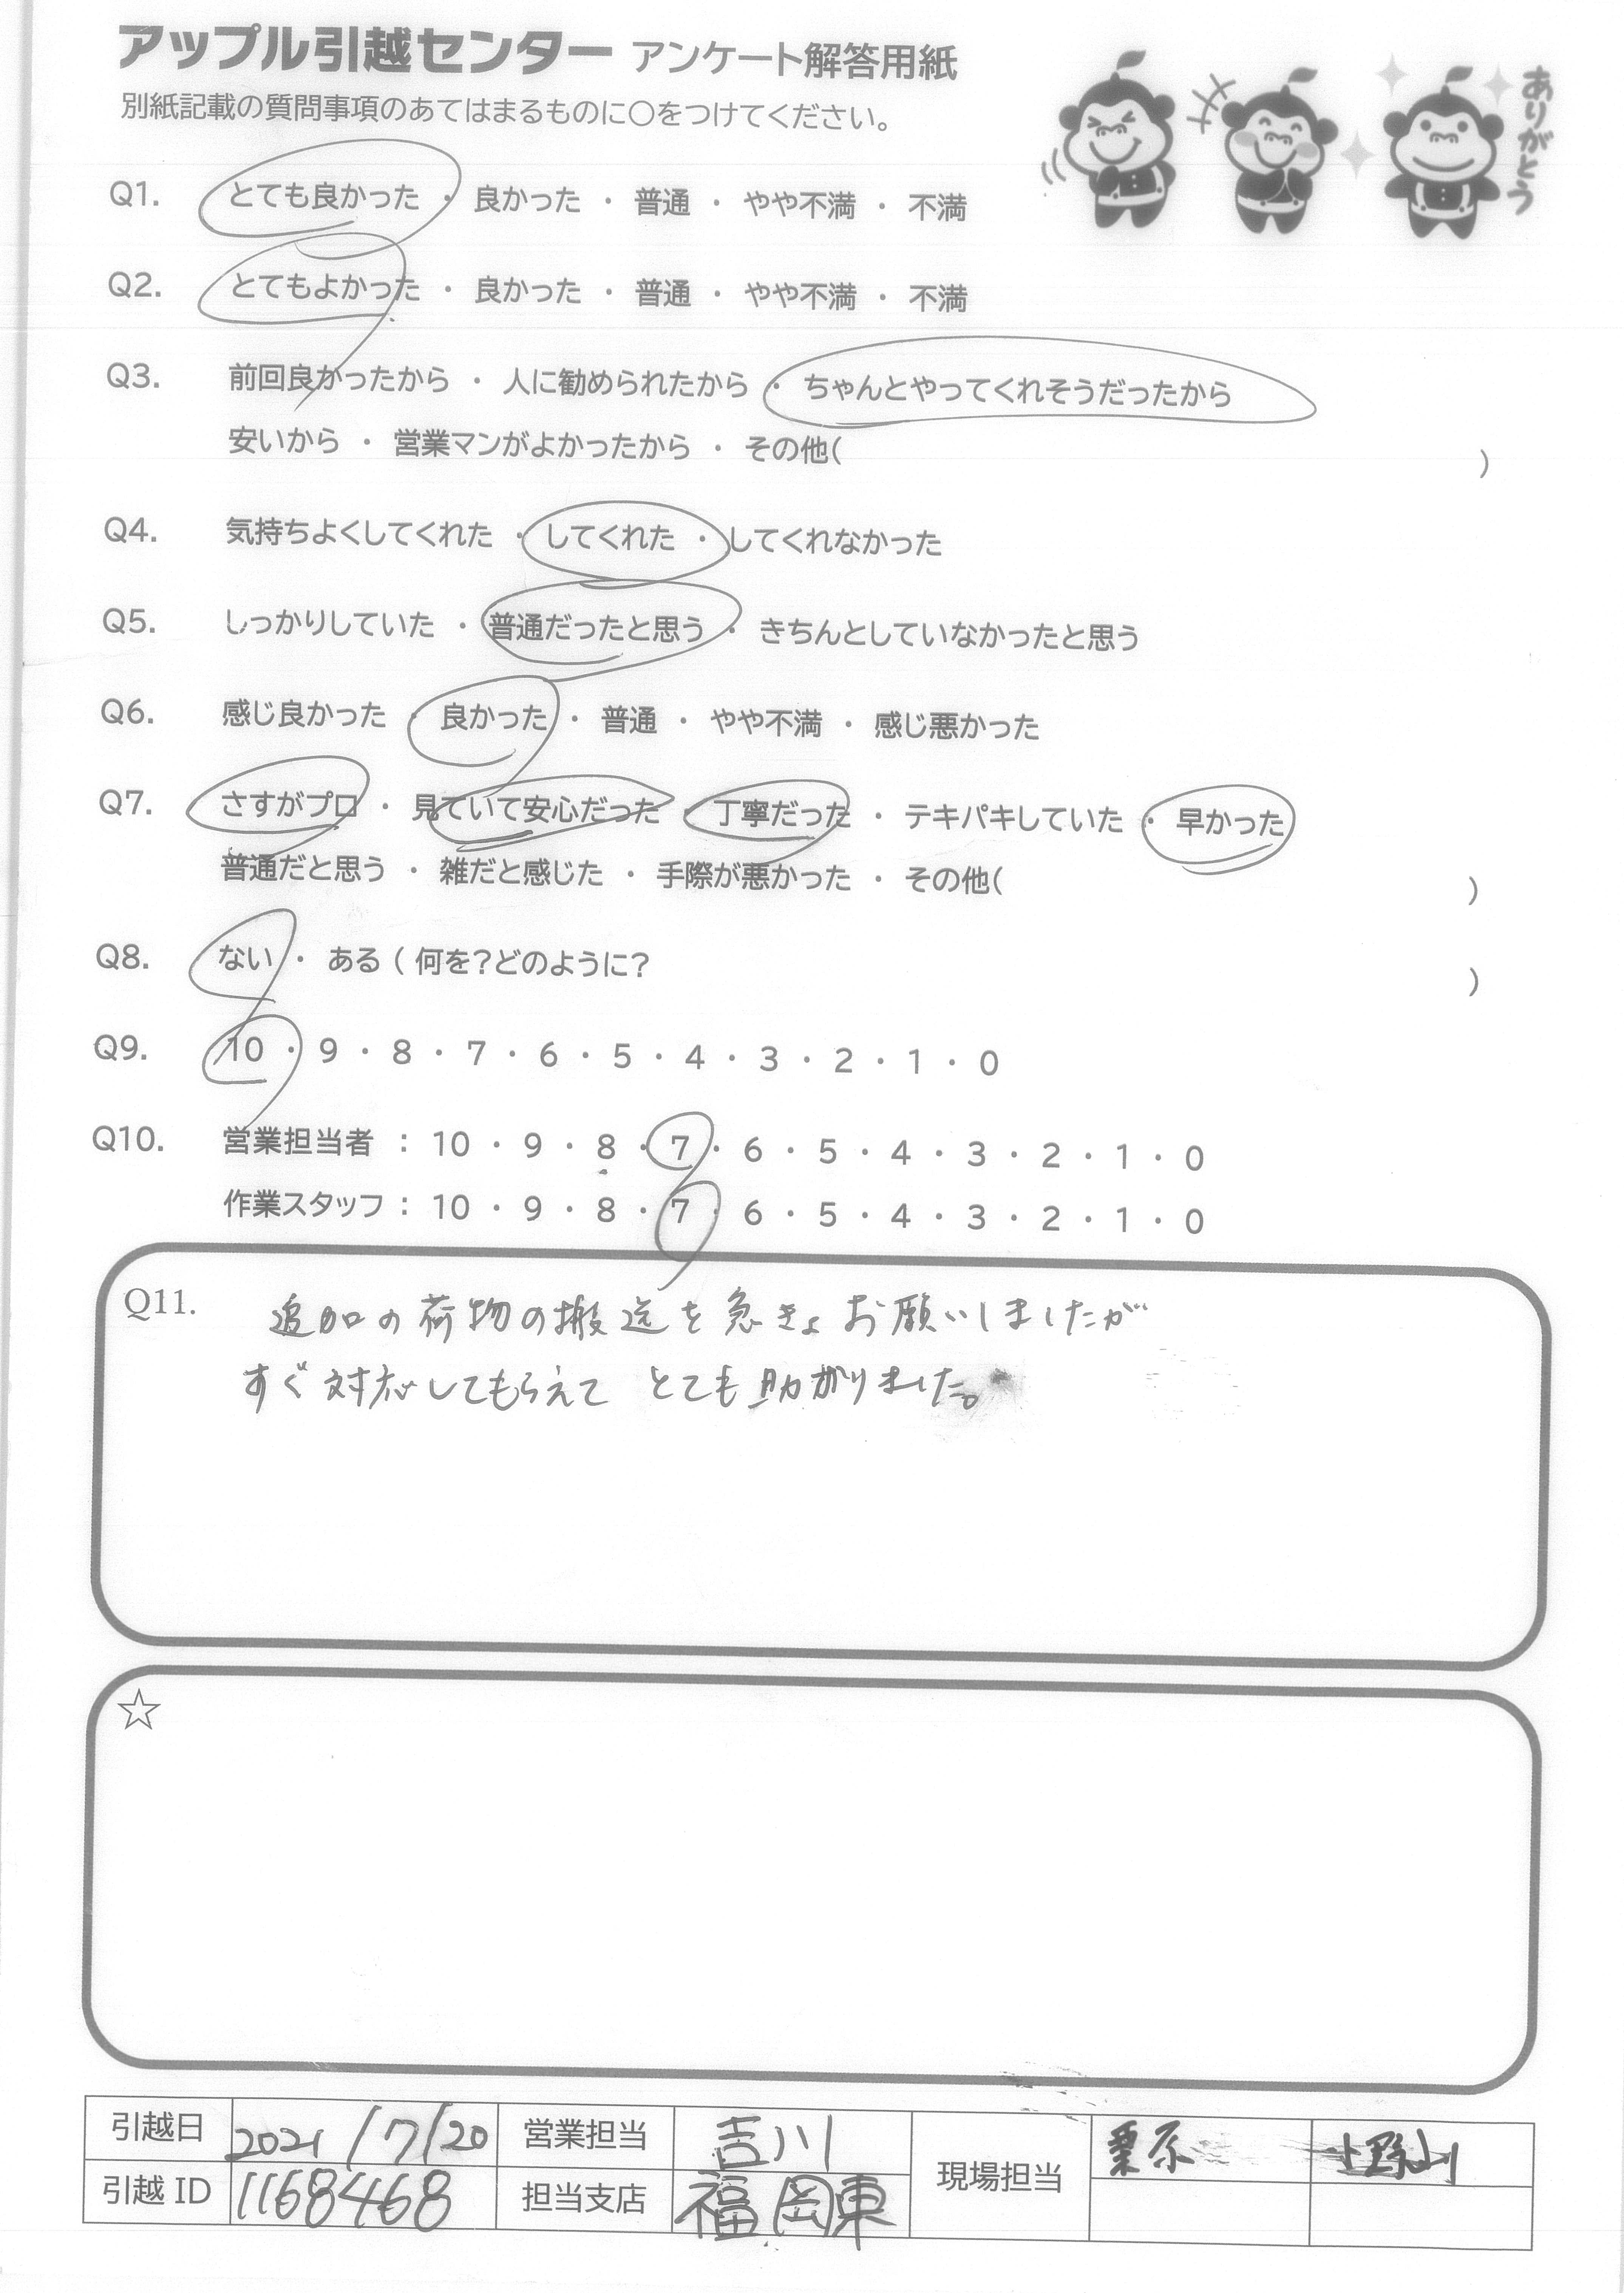 アップル引越センター アンケート解答用紙
別紙記載の質問事項のあてはまるものに〇をつけてください。
ありがとう
Q1. とても良かった ・ 良かった ・ 普通 ・ やや不満 ・ 不満
Q2. とてもよかった ・ 良かった ・ 普通 ・ やや不満 ・ 不満
Q3. 前回良かったから ・ 人に勧められたから ・ ちゃんとやってくれそうだったから
安いから ・ 営業マンがよかったから ・ その他( )
Q4. 気持ちよくしてくれた ・ してくれた ・ してくれなかった
Q5. しっかりしていた ・ 普通だったと思う ・ きちんとしていなかったと思う
Q6. 感じ良かった ・ 良かった ・ 普通 ・ やや不満 ・ 感じ悪かった
Q7. さすがプロ ・ 見ていて安心だった ・ 丁寧だった ・ テキパキしていた ・ 早かった
普通だと思う ・ 雑だと感じた ・ 手際が悪かった ・ その他( )
Q8. ない ・ ある ( 何を?どのように? )
Q9. 10 ・ 9 ・ 8 ・ 7 ・ 6 ・ 5 ・ 4 ・ 3 ・ 2 ・ 1 ・ 0
Q10. 営業担当者 : 10 ・ 9 ・ 8 ・ 7 ・ 6 ・ 5 ・ 4 ・ 3 ・ 2 ・ 1 ・ 0
作業スタッフ : 10 ・ 9 ・ 8 ・ 7 ・ 6 ・ 5 ・ 4 ・ 3 ・ 2 ・ 1 ・ 0
Q11. 追加の荷物の搬送を急きょお願いしましたが
すぐ対応してもらえて とても助かりました。
☆
引越日 2021/7/20 営業担当 吉川 現場担当 栗原
引越 ID 1168468 担当支店 福岡東